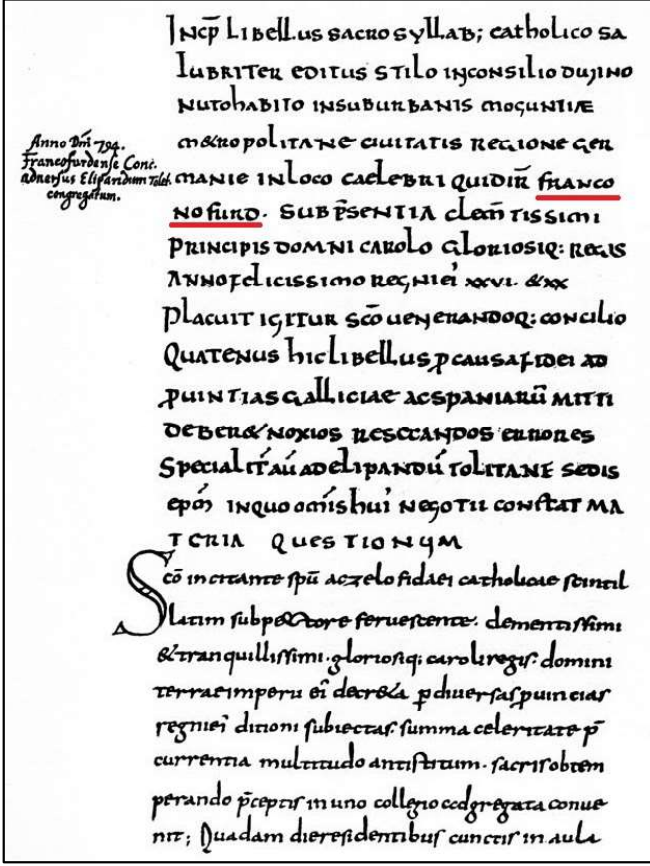 Anno Dñi 794.
Francofurdense Conc.
aduersus Elipandum Tolet.
congregatum.
INCP̄ LIBELLUS SACROSYLLAB; CATHOLICO SA
LUBRITER EDITUS STILO INCONSILIO DIUINO
NUTOHABITO INSUBURBANIS MOGUNTIÆ
M&ROPOLITANE CIUITATIS REGIONE GER
MANIE INLOCO CAELEBRI QUIDIR̄ FRANCO
NOFURD. SUBP̄SENTIA CLEM̄TISSIMI
PRINCIPIS DOMNI CAROLO GLORIOSIQ: REGIS
ANNOFELICISSIMO REGNIEI XXVI. &XX
PLACUIT IGITUR SC̄O UENERANDOQ: CONCILIO
QUATENUS HICLIBELLUS ꝑ CAUSAFIDEI AD
ꝓUINTIASGALLICIAE ACSPANIARŪ MITTI
DEBER& NOXIOS RESECANDOS ERRORES
SPECIALIT̄ AŪ ADELIPANDŪ TOLITANE SEDIS
EPM̄ INQUO OM̄ISHUI' NEGOTII CONSTAT MA
TERIA QUESTIONUM
Sc̄o incitante sp̄u aczelo fidaei catholicae scintil
latim subpectore feruescente. clementissimi
&tranquillissimi. gloriosiq; caroliregis. domini
terrae imperii ei' decr&a ꝑ diuersas ꝓuincias
regniei' ditioni subiectas. summa celeritate p̄
currentia multitudo antistitum. sacris obtem
perando p̄ceptis inuno collegio co̅gregata conue
nit; Quadam dieresidentibus cunctis in aula